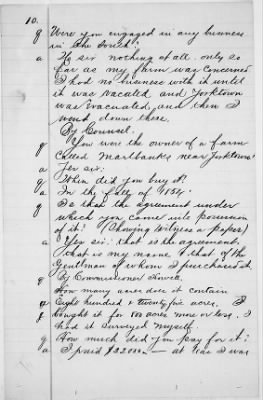 10.
q Were you engaged in any business
in the South?
a No sir nothing at all. only so
far as my farm was concerned
I had no business with it until
it was vacated and Yorktown
was Evacuated, and then I
went down there.
By Counsel.
q You were the owner of a farm
called Marlbanks near Yorktown?
a Yes sir.
q When did you buy it?
a In the fall of 1854.
q Is this the agreement under
which you came into possession
of it? (Showing witness a paper)
a Yes sir. that is the agreement,
that is my name & that of the
Gentleman of whom I purchased it.
By Commissioner
q How many acres does it contain
a Eight hundred & twenty five acres. I
bought it for 800 acres more or less. I
had it surveyed myself.
q How much did you pay for it?
a I paid $22000 — at least I was